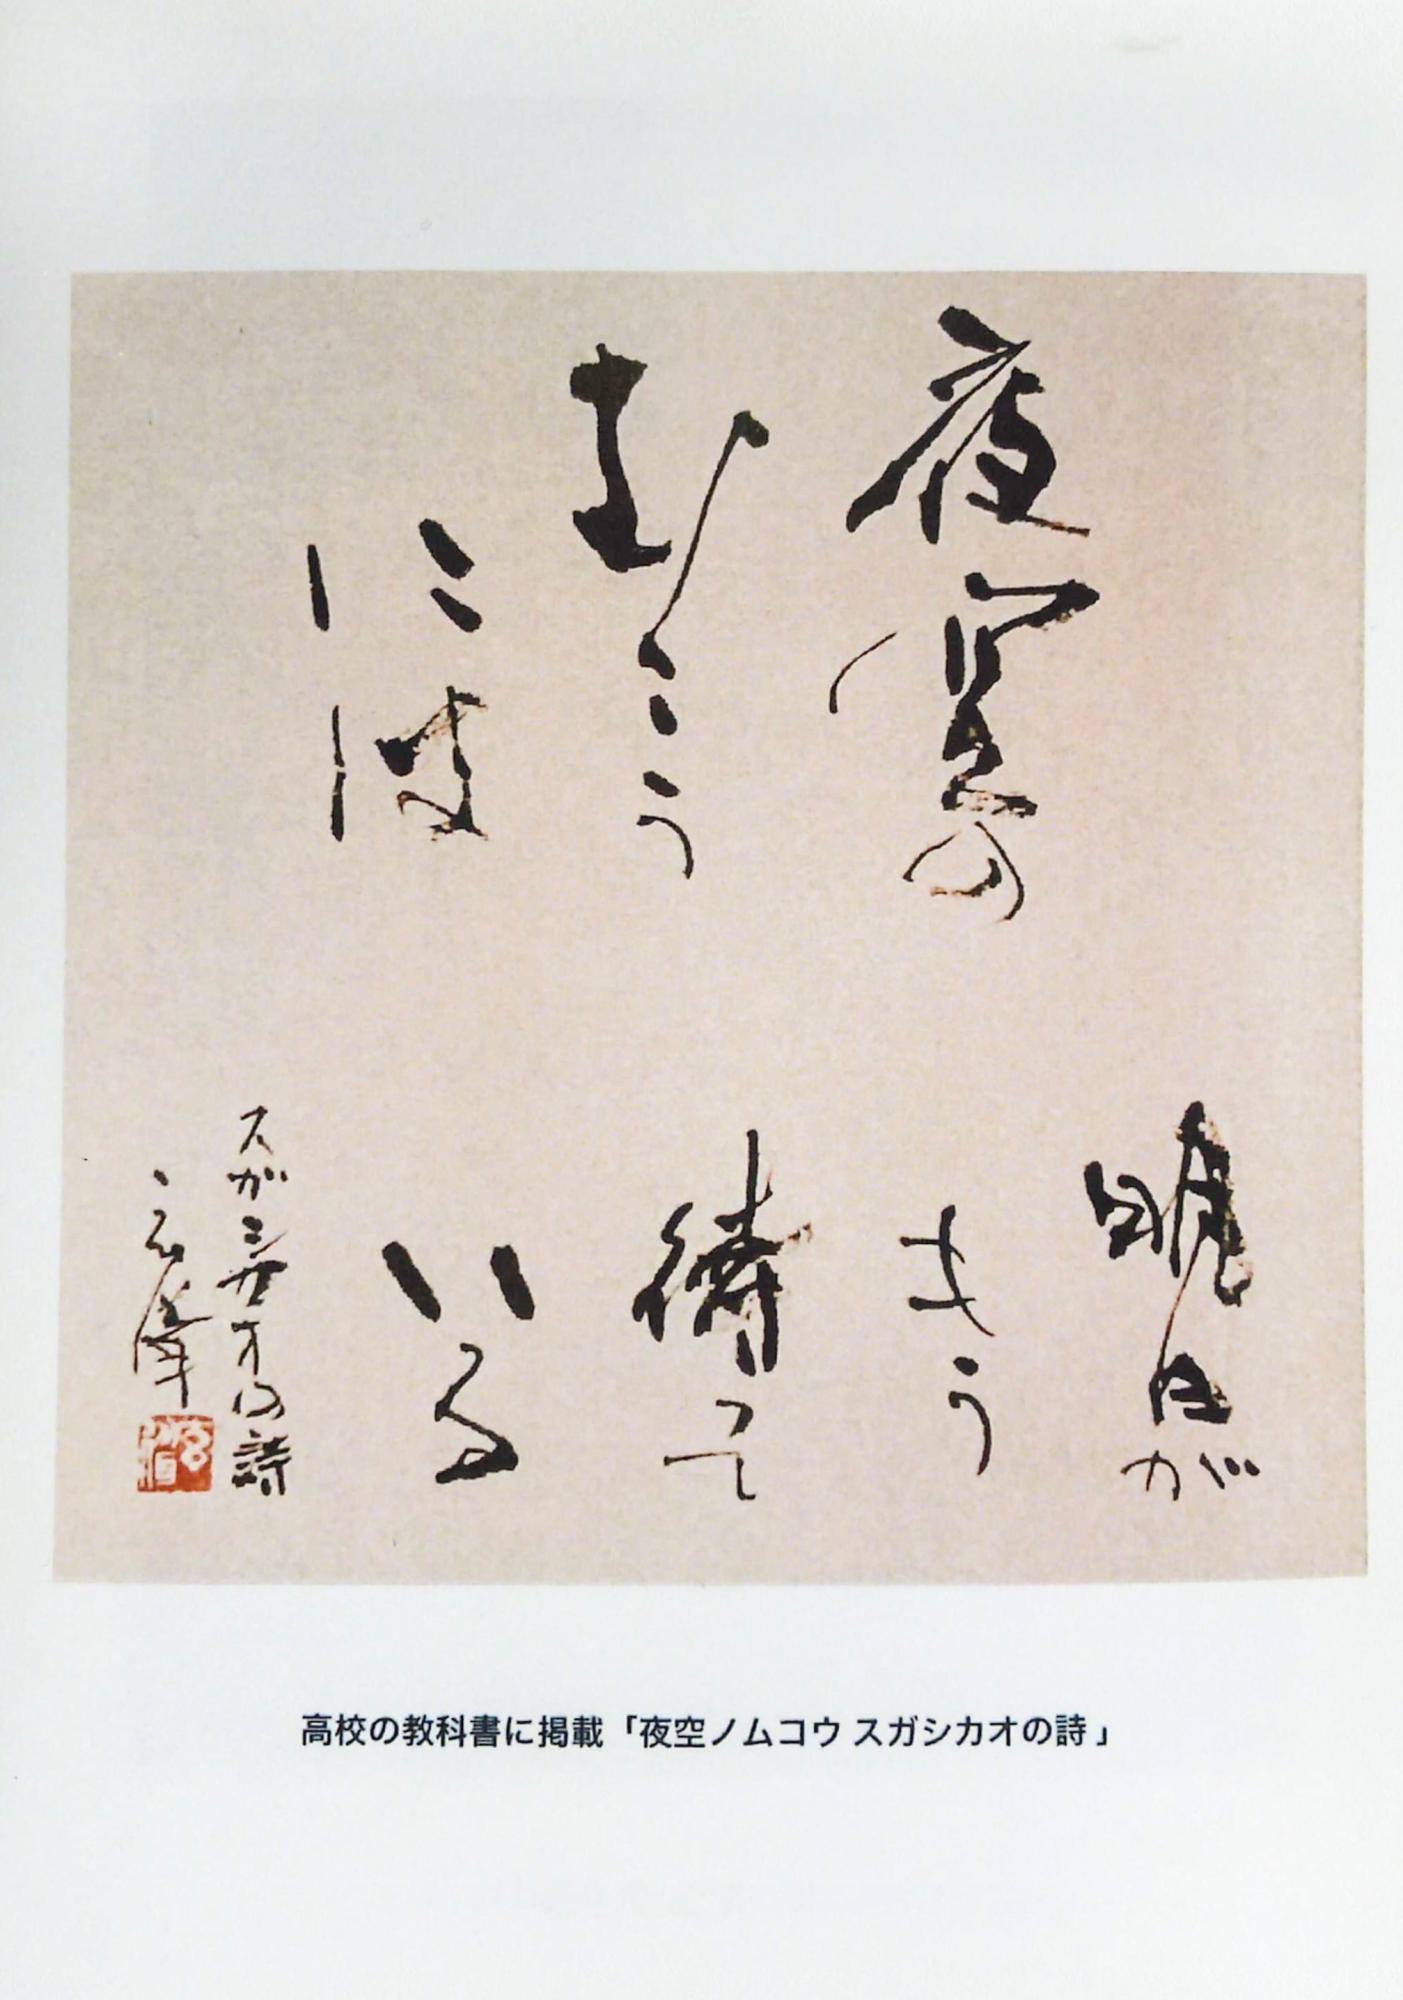 夜空の
むこう
には
明日が
もう
待って
いる
スガシカオの詩
高校の教科書に掲載「夜空ノムコウ スガシカオの詩」